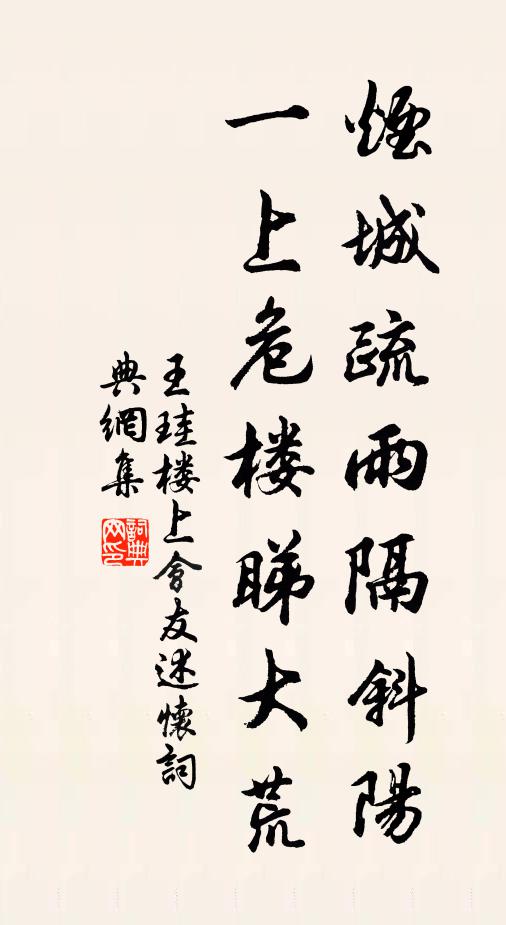 煙城疏雨隔斜陽
一上危楼睇大荒
王珪楼上會友述懷詞
典網集
詞典
网印